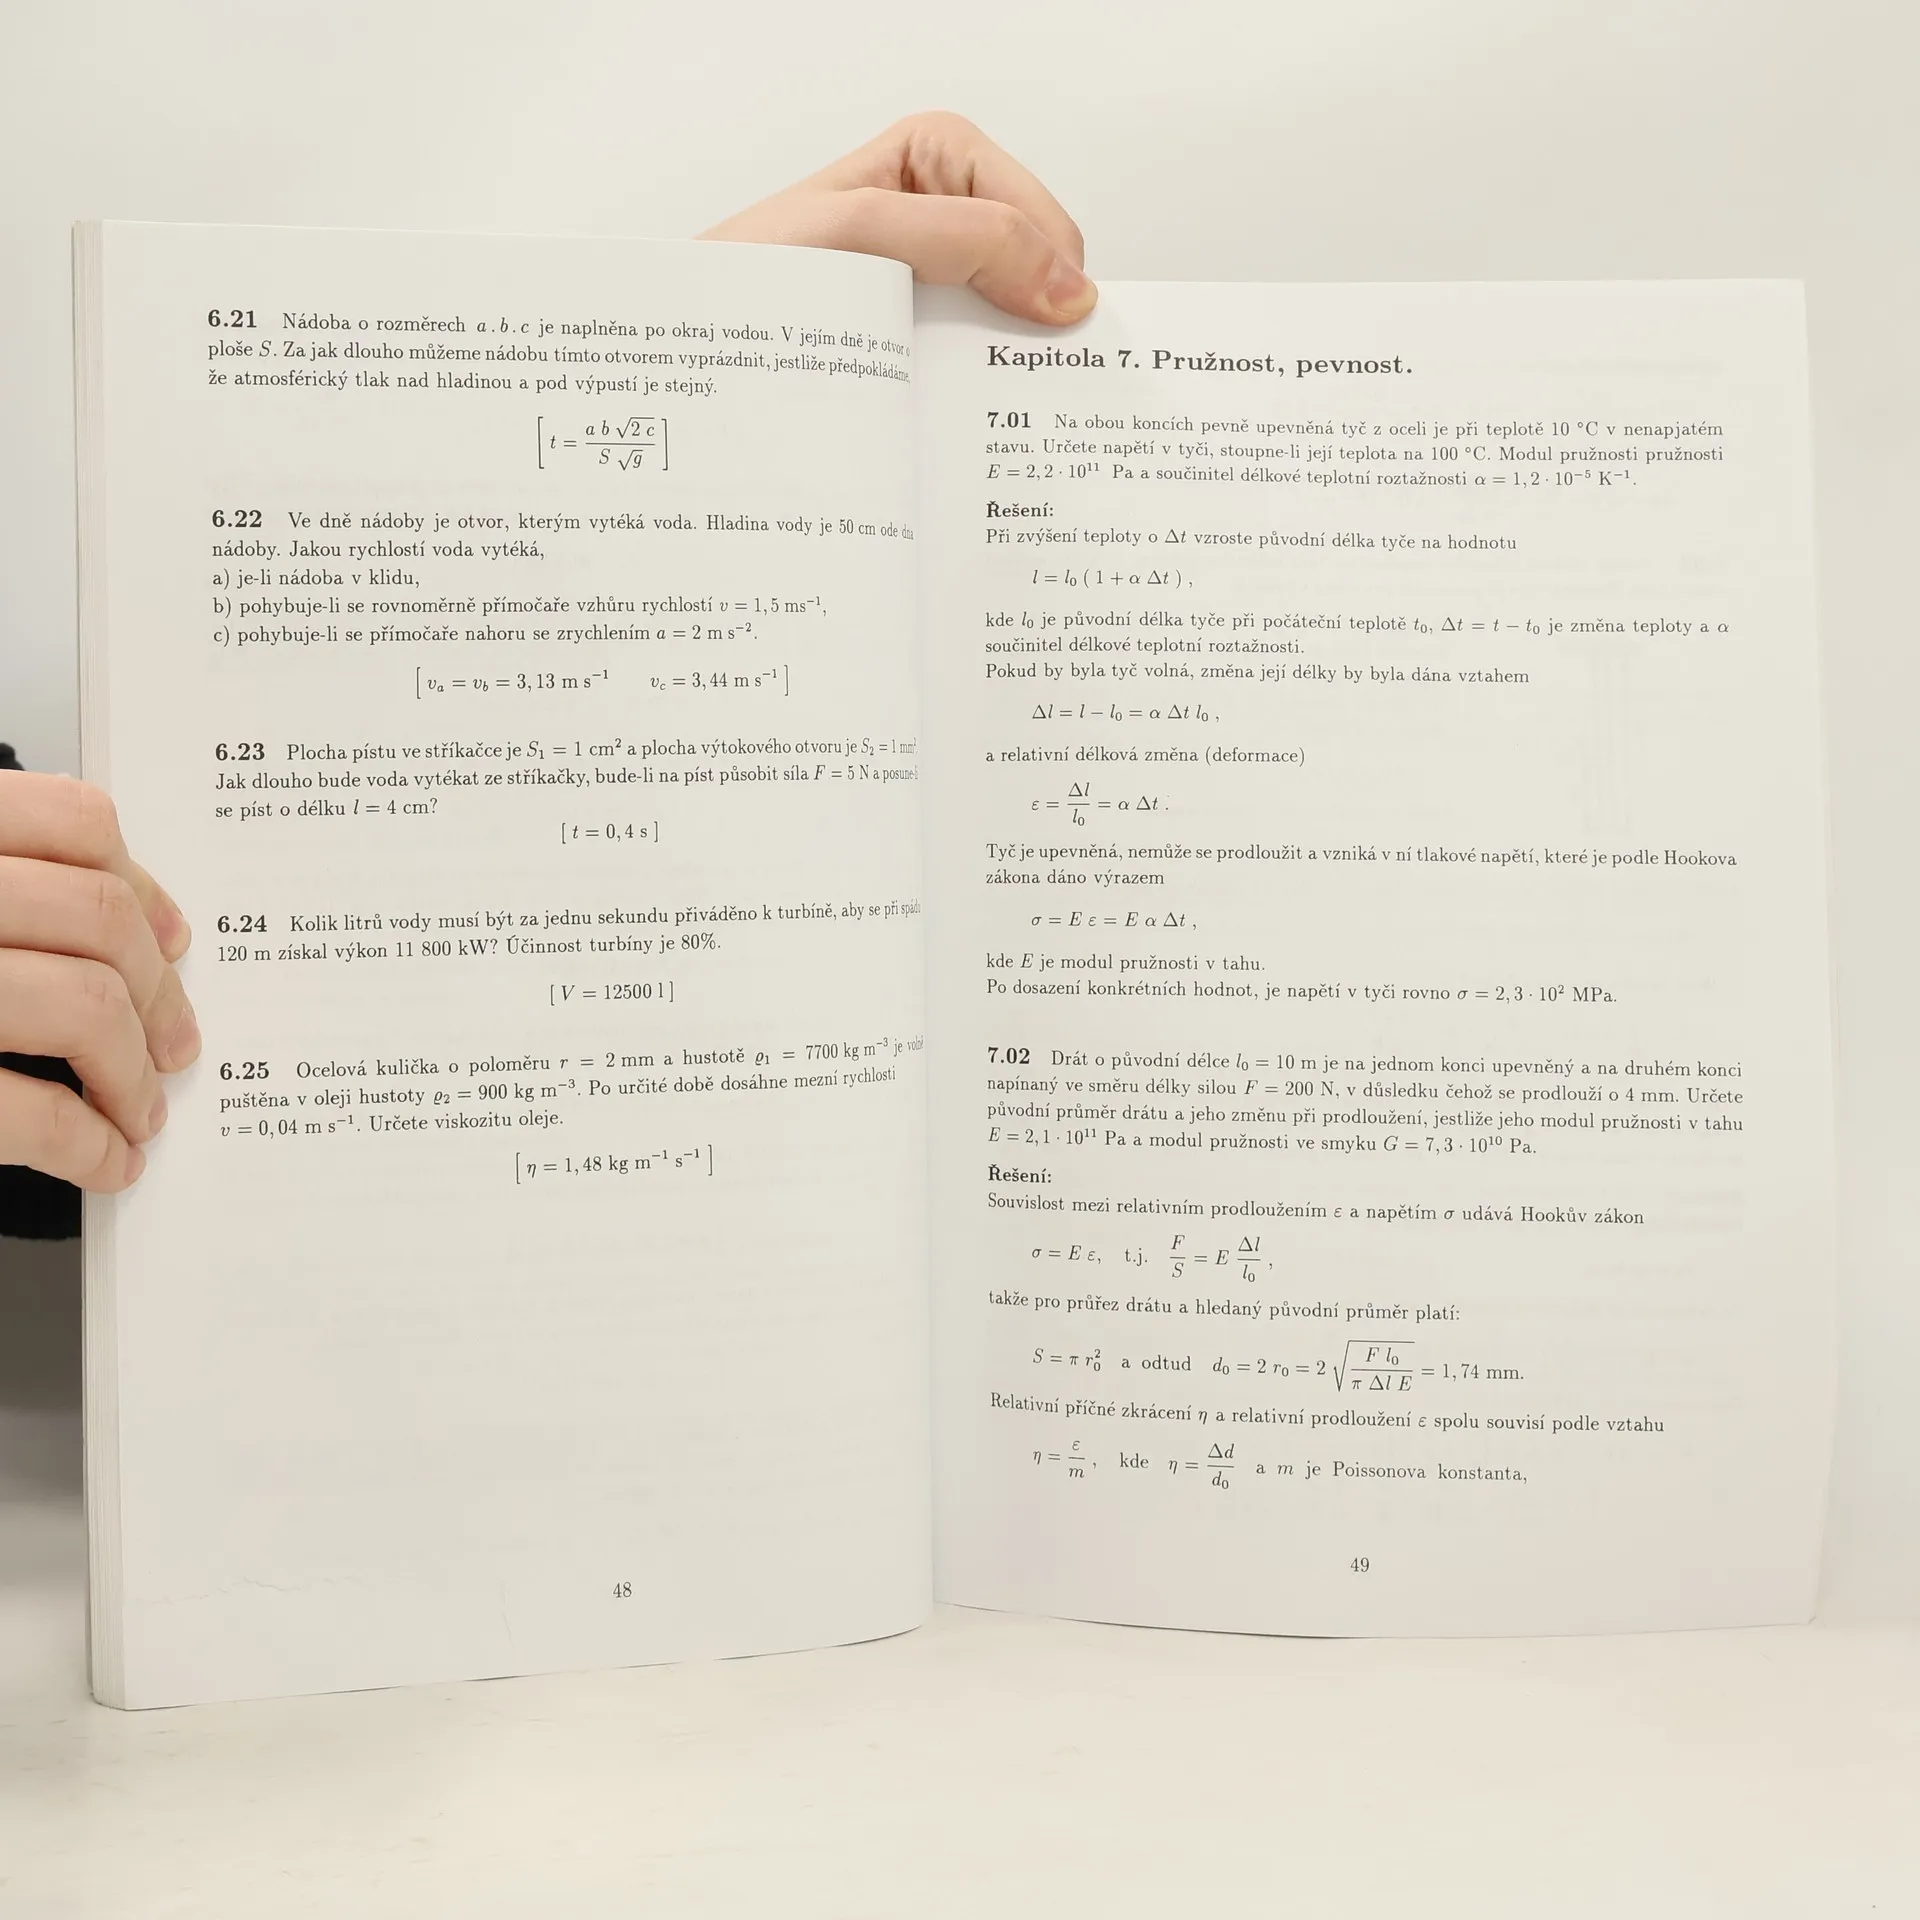 6.21 Nádoba o rozměrech a.b.c je naplněna po okraj vodou. V jejím dně je otvor o
ploše S. Za jak dlouho můžeme nádobu tímto otvorem vyprázdnit, jestliže předpokládáme,
že atmosférický tlak nad hladinou a pod výpustí je stejný.
[ t = a b √2 c / S √g ]
6.22 Ve dně nádoby je otvor, kterým vytéká voda. Hladina vody je 50 cm ode dna
nádoby. Jakou rychlostí voda vytéká,
a) je-li nádoba v klidu,
b) pohybuje-li se rovnoměrně přímočaře vzhůru rychlostí v = 1,5 ms⁻¹,
c) pohybuje-li se přímočaře nahoru se zrychlením a = 2 m s⁻².
[ vₐ = v_b = 3,13 m s⁻¹ v_c = 3,44 m s⁻¹ ]
6.23 Plocha pístu ve stříkačce je S₁ = 1 cm² a plocha výtokového otvoru je S₂ = 1 mm².
Jak dlouho bude voda vytékat ze stříkačky, bude-li na píst působit síla F = 5 N a posune-li
se píst o délku l = 4 cm?
[ t = 0,4 s ]
6.24 Kolik litrů vody musí být za jednu sekundu přiváděno k turbíně, aby se při spádu
120 m získal výkon 11 800 kW? Účinnost turbíny je 80%.
[ V = 12500 l ]
6.25 Ocelová kulička o poloměru r = 2 mm a hustotě ϱ₁ = 7700 kg m⁻³ je volně
puštěna v oleji hustoty ϱ₂ = 900 kg m⁻³. Po určité době dosáhne mezní rychlosti
v = 0,04 m s⁻¹. Určete viskozitu oleje.
[ η = 1,48 kg m⁻¹ s⁻¹ ]
48
Kapitola 7. Pružnost, pevnost.
7.01 Na obou koncích pevně upevněná tyč z oceli je při teplotě 10 °C v nenapjatém
stavu. Určete napětí v tyči, stoupne-li její teplota na 100 °C. Modul pružnosti pružnosti
E = 2,2 · 10¹¹ Pa a součinitel délkové teplotní roztažnosti α = 1,2 · 10⁻⁵ K⁻¹.
Řešení:
Při zvýšení teploty o Δt vzroste původní délka tyče na hodnotu
l = l₀ ( 1 + α Δt ) ,
kde l₀ je původní délka tyče při počáteční teplotě t₀, Δt = t − t₀ je změna teploty a α
součinitel délkové teplotní roztažnosti.
Pokud by byla tyč volná, změna její délky by byla dána vztahem
Δl = l − l₀ = α Δt l₀ ,
a relativní délková změna (deformace)
ε = Δl / l₀ = α Δt .
Tyč je upevněná, nemůže se prodloužit a vzniká v ní tlakové napětí, které je podle Hookova
zákona dáno výrazem
σ = E ε = E α Δt ,
kde E je modul pružnosti v tahu.
Po dosazení konkrétních hodnot, je napětí v tyči rovno σ = 2,3 · 10² MPa.
7.02 Drát o původní délce l₀ = 10 m je na jednom konci upevněný a na druhém konci
napínaný ve směru délky silou F = 200 N, v důsledku čehož se prodlouží o 4 mm. Určete
původní průměr drátu a jeho změnu při prodloužení, jestliže jeho modul pružnosti v tahu
E = 2,1 · 10¹¹ Pa a modul pružnosti ve smyku G = 7,3 · 10¹⁰ Pa.
Řešení:
Souvislost mezi relativním prodloužením ε a napětím σ udává Hookův zákon
σ = E ε, t.j. F / S = E Δl / l₀ ,
takže pro průřez drátu a hledaný původní průměr platí:
S = π r₀² a odtud d₀ = 2 r₀ = 2 √(F l₀ / π Δl E) = 1,74 mm.
Relativní příčné zkrácení η a relativní prodloužení ε spolu souvisí podle vztahu
η = ε / m , kde η = Δd / d₀ a m je Poissonova konstanta,
49